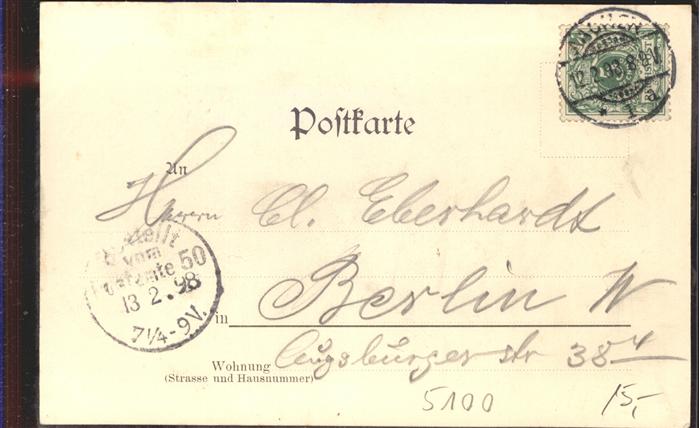 AACHEN
12.2.98.8-9V.
* 1 a
Postkarte
An
Herrn Cl. Eberhardt
Bestellt
vom
Postamte 50
13 2.98
7¼-9V.
in Berlin W
Wohnung Augsburgerstr 38
(Strasse und Hausnummer)
5100 15,-